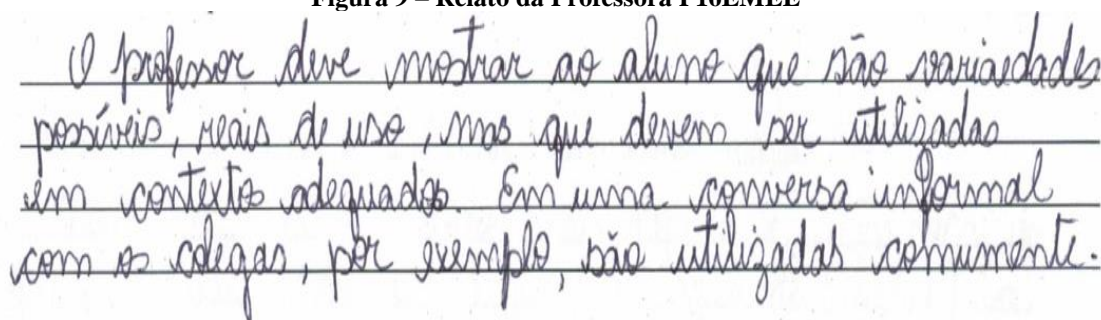 Figura 9 – Relato da Professora P16EMEE
O professor deve mostrar ao aluno que são variedades
possíveis, reais de uso, mas que devem ser utilizadas
em contextos adequados. Em uma conversa informal
com os colegas, por exemplo, são utilizadas comumente.